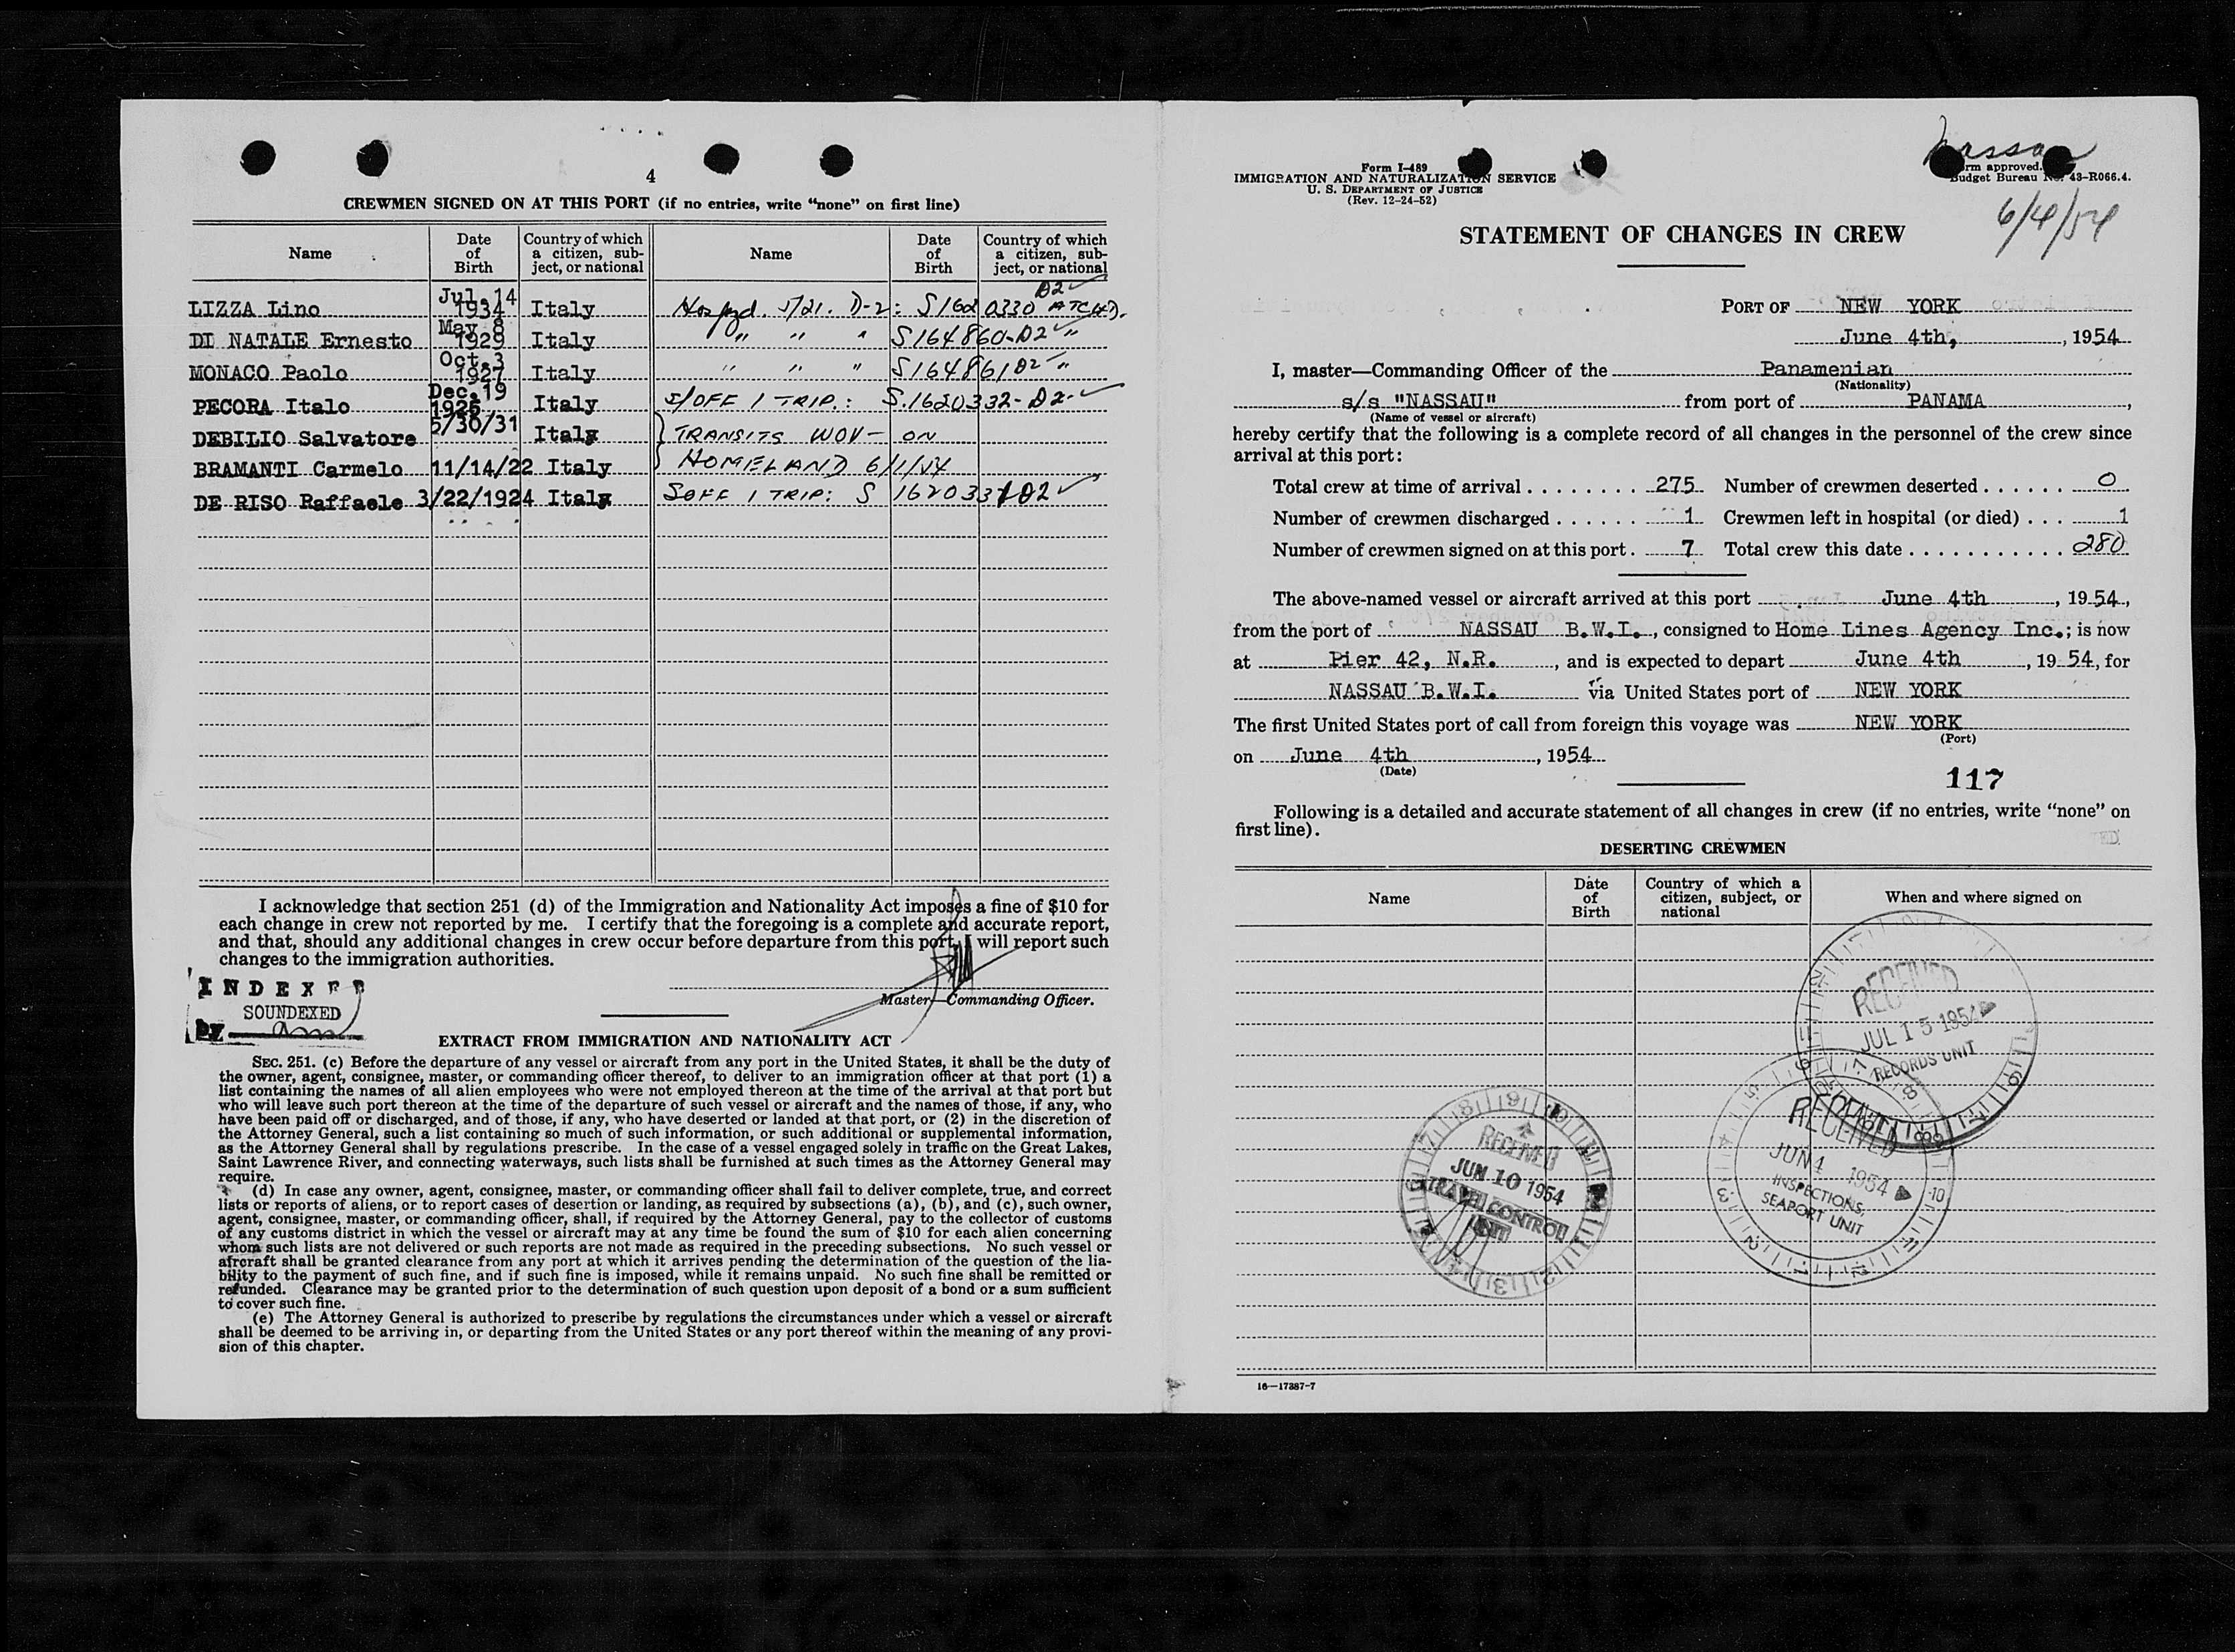 4
CREWMEN SIGNED ON AT THIS PORT (if no entries, write “none” on first line)
Name Date of Birth Country of which a citizen, subject, or national Name Date of Birth Country of which a citizen, subject, or national
LIZZA Lino Jul. 14 1934 Italy Hospzd. 5/21. D-2: S1620330 D2 ATCHD.
DI NATALE Ernesto May 8 1929 Italy " " " S164860-D2 "
MONACO Paolo Oct. 3 1927 Italy " " " S164861 D2 "
PECORA Italo Dec. 19 1925 Italy S/OFF 1 TRIP.: S.1620332-D2-
DEBILIO Salvatore 5/30/31 Italy TRANSITS WOV- ON
BRAMANTI Carmelo 11/14/22 Italy HOMELAND 6/1/54
DE RISO Raffaele 3/22/1924 Italy SOFF 1 TRIP: S 1620331 D2
I acknowledge that section 251 (d) of the Immigration and Nationality Act imposes a fine of $10 for
each change in crew not reported by me. I certify that the foregoing is a complete and accurate report,
and that, should any additional changes in crew occur before departure from this port, I will report such
changes to the immigration authorities.
INDEXED
SOUNDEXED
by am
Master—Commanding Officer.
EXTRACT FROM IMMIGRATION AND NATIONALITY ACT
SEC. 251. (c) Before the departure of any vessel or aircraft from any port in the United States, it shall be the duty of
the owner, agent, consignee, master, or commanding officer thereof, to deliver to an immigration officer at that port (1) a
list containing the names of all alien employees who were not employed thereon at the time of the arrival at that port but
who will leave such port thereon at the time of the departure of such vessel or aircraft and the names of those, if any, who
have been paid off or discharged, and of those, if any, who have deserted or landed at that port, or (2) in the discretion of
the Attorney General, such a list containing so much of such information, or such additional or supplemental information,
as the Attorney General shall by regulations prescribe. In the case of a vessel engaged solely in traffic on the Great Lakes,
Saint Lawrence River, and connecting waterways, such lists shall be furnished at such times as the Attorney General may
require.
(d) In case any owner, agent, consignee, master, or commanding officer shall fail to deliver complete, true, and correct
lists or reports of aliens, or to report cases of desertion or landing, as required by subsections (a), (b), and (c), such owner,
agent, consignee, master, or commanding officer, shall, if required by the Attorney General, pay to the collector of customs
of any customs district in which the vessel or aircraft may at any time be found the sum of $10 for each alien concerning
whom such lists are not delivered or such reports are not made as required in the preceding subsections. No such vessel or
aircraft shall be granted clearance from any port at which it arrives pending the determination of the question of the lia-
bility to the payment of such fine, and if such fine is imposed, while it remains unpaid. No such fine shall be remitted or
refunded. Clearance may be granted prior to the determination of such question upon deposit of a bond or a sum sufficient
to cover such fine.
(e) The Attorney General is authorized to prescribe by regulations the circumstances under which a vessel or aircraft
shall be deemed to be arriving in, or departing from the United States or any port thereof within the meaning of any provi-
sion of this chapter.
Form I-489
IMMIGRATION AND NATURALIZATION SERVICE
U. S. DEPARTMENT OF JUSTICE
(Rev. 12-24-52)
Nassau
Form approved.
Budget Bureau No. 43-R066.4.
6/4/54
STATEMENT OF CHANGES IN CREW
PORT OF NEW YORK
June 4th, , 1954
I, master—Commanding Officer of the Panamenian
(Nationality)
s/s "NASSAU" from port of PANAMA ,
(Name of vessel or aircraft)
hereby certify that the following is a complete record of all changes in the personnel of the crew since
arrival at this port:
Total crew at time of arrival . . . . . . . . 275 Number of crewmen deserted . . . . . . 0
Number of crewmen discharged . . . . . . 1 Crewmen left in hospital (or died) . . . 1
Number of crewmen signed on at this port . 7 Total crew this date . . . . . . . . . . . 280
The above-named vessel or aircraft arrived at this port June 4th , 1954,
from the port of NASSAU B.W.I. , consigned to Home Lines Agency Inc.; is now
at Pier 42, N.R. , and is expected to depart June 4th , 1954, for
NASSAU B.W.I. via United States port of NEW YORK
The first United States port of call from foreign this voyage was NEW YORK
(Port)
on June 4th , 1954
(Date)
117
Following is a detailed and accurate statement of all changes in crew (if no entries, write “none” on
first line).
DESERTING CREWMEN
Name Date of Birth Country of which a citizen, subject, or national When and where signed on
RECEIVED
JUL 15 1954
RECORDS UNIT
RECEIVED
JUN 10 1954
TRAVEL CONTROL
UNIT
RECEIVED
JUN 4 1954
INSPECTIONS,
SEAPORT UNIT
16—17387-7